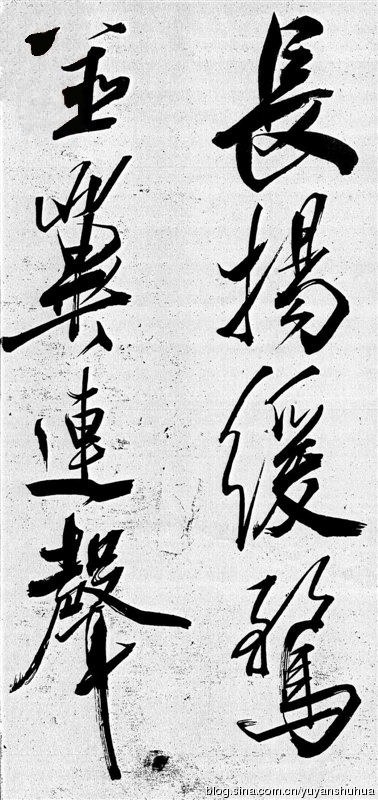 長揚緩騖
並翼連聲
blog.sina.com.cn/yuyanshuhua